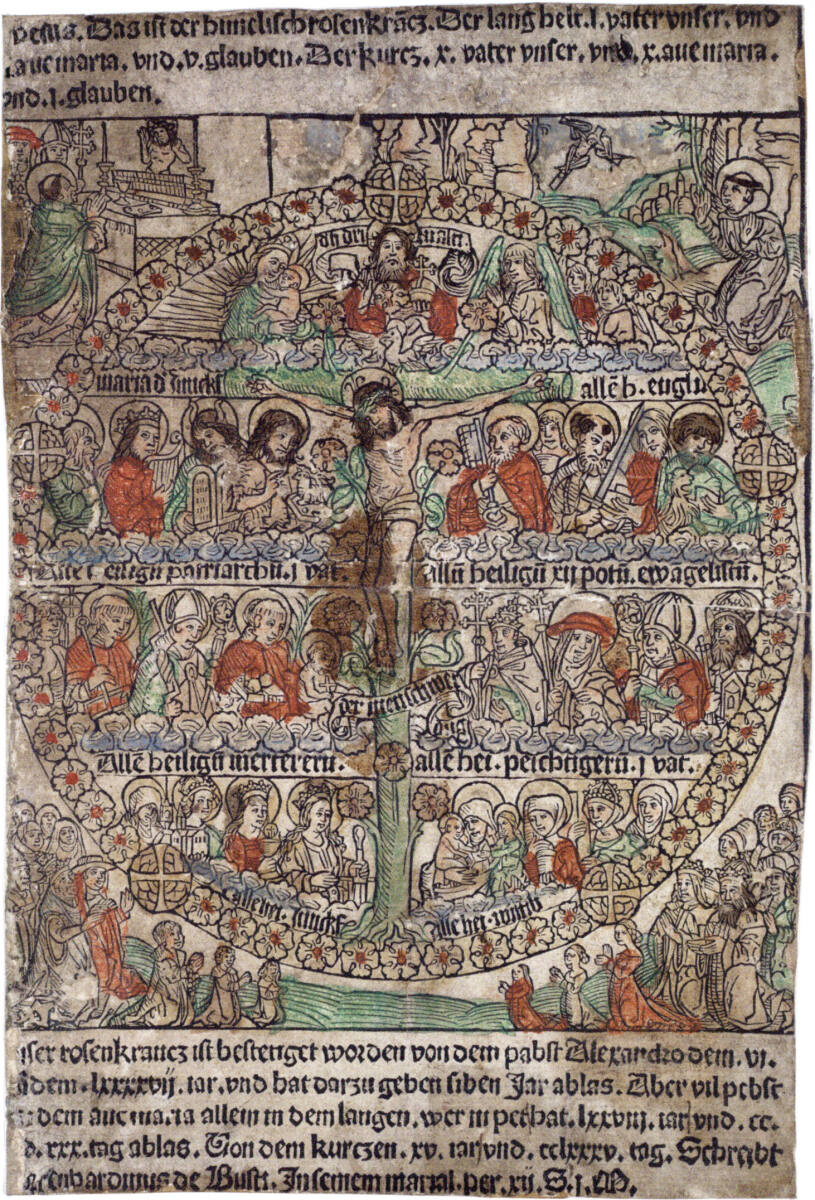 Das ist der himelisch rosenkrācz. Der lang helt .l. vater vnser. vnd
.l. aue maria. vnd .v. glauben. Der kurcz .x. vater vnser. vnd .x. aue maria.
vnd .j. glauben.
maria d'
allē h.
heiligū patriarchū. j vat.
allū heiligū xij potū. ewāgelistū.
der menschwer
dung
Allē heiligū mertererū.
alle hei. peichtigerū. j vat.
alle hei.
alle hei.
rosenkrancz ist bestetiget worden von dem pabst Alexandro dem .vi.
.lxxxxvij. iar. vnd hat darzu geben siben Jar ablas. Aber vil pebst
dem aue maria allein in dem langen. wer in pethat. lxxviij. iar vnd. cc.
.xxx. tag ablas. Von dem kurczen. xv. iar vnd. cclxxxv. tag. Schreibt
de Busti. In seinem marial. per. xij. S. j. M.